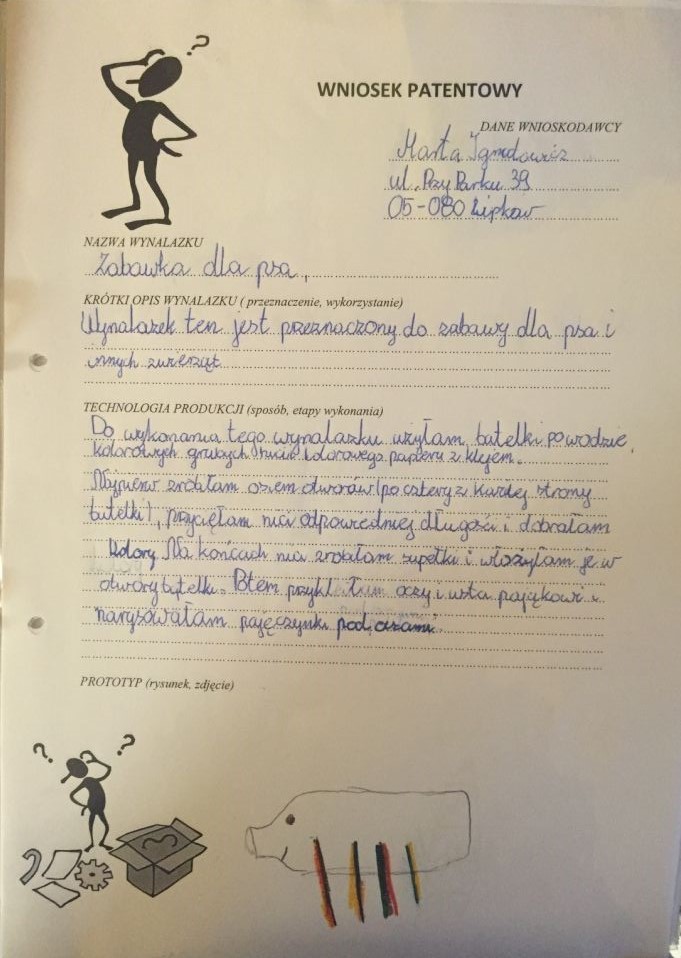 ?
WNIOSEK PATENTOWY
DANE WNIOSKODAWCY
Marta
ul. Przy Parku 39
05-080 Lipków
NAZWA WYNALAZKU
Zabawka dla psa
KRÓTKI OPIS WYNALAZKU ( przeznaczenie, wykorzystanie)
Wynalazek ten jest przeznaczony do zabawy dla psa i
innych zwierząt
TECHNOLOGIA PRODUKCJI (sposób, etapy wykonania)
Do wykonania tego wynalazku użyłam butelki po wodzie,
kolorowych grubych kolorowego papieru z klejem.
Najpierw zrobiłam osiem otworów (po cztery z każdej strony
butelki), przycięłam nici odpowiedniej długości i dobrałam
kolory Na końcach nici zrobiłam supełki i włożyłam je w
otwory butelki. Potem oczy i usta pająkowi i
narysowałam pajęczynki pod oczami.
PROTOTYP (rysunek, zdjęcie)
? ?